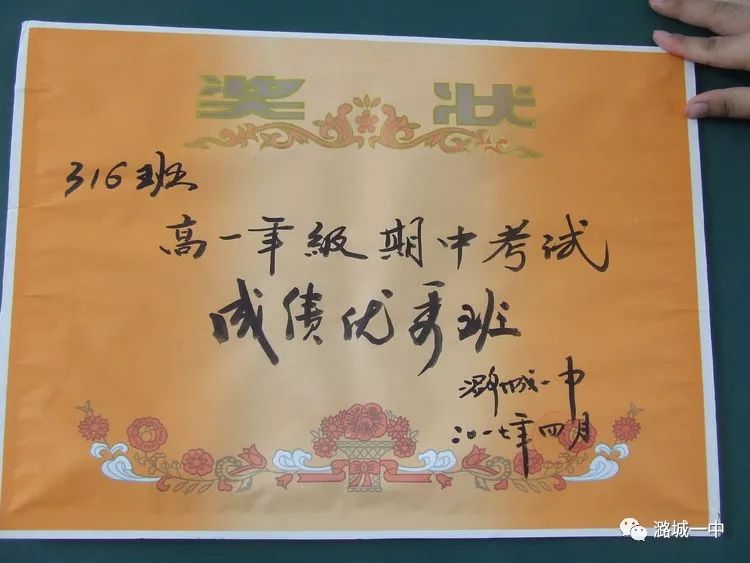 奖状
316班
高一年級期中考试
成绩优秀班
潞城一中
二〇一七年四月
潞城一中